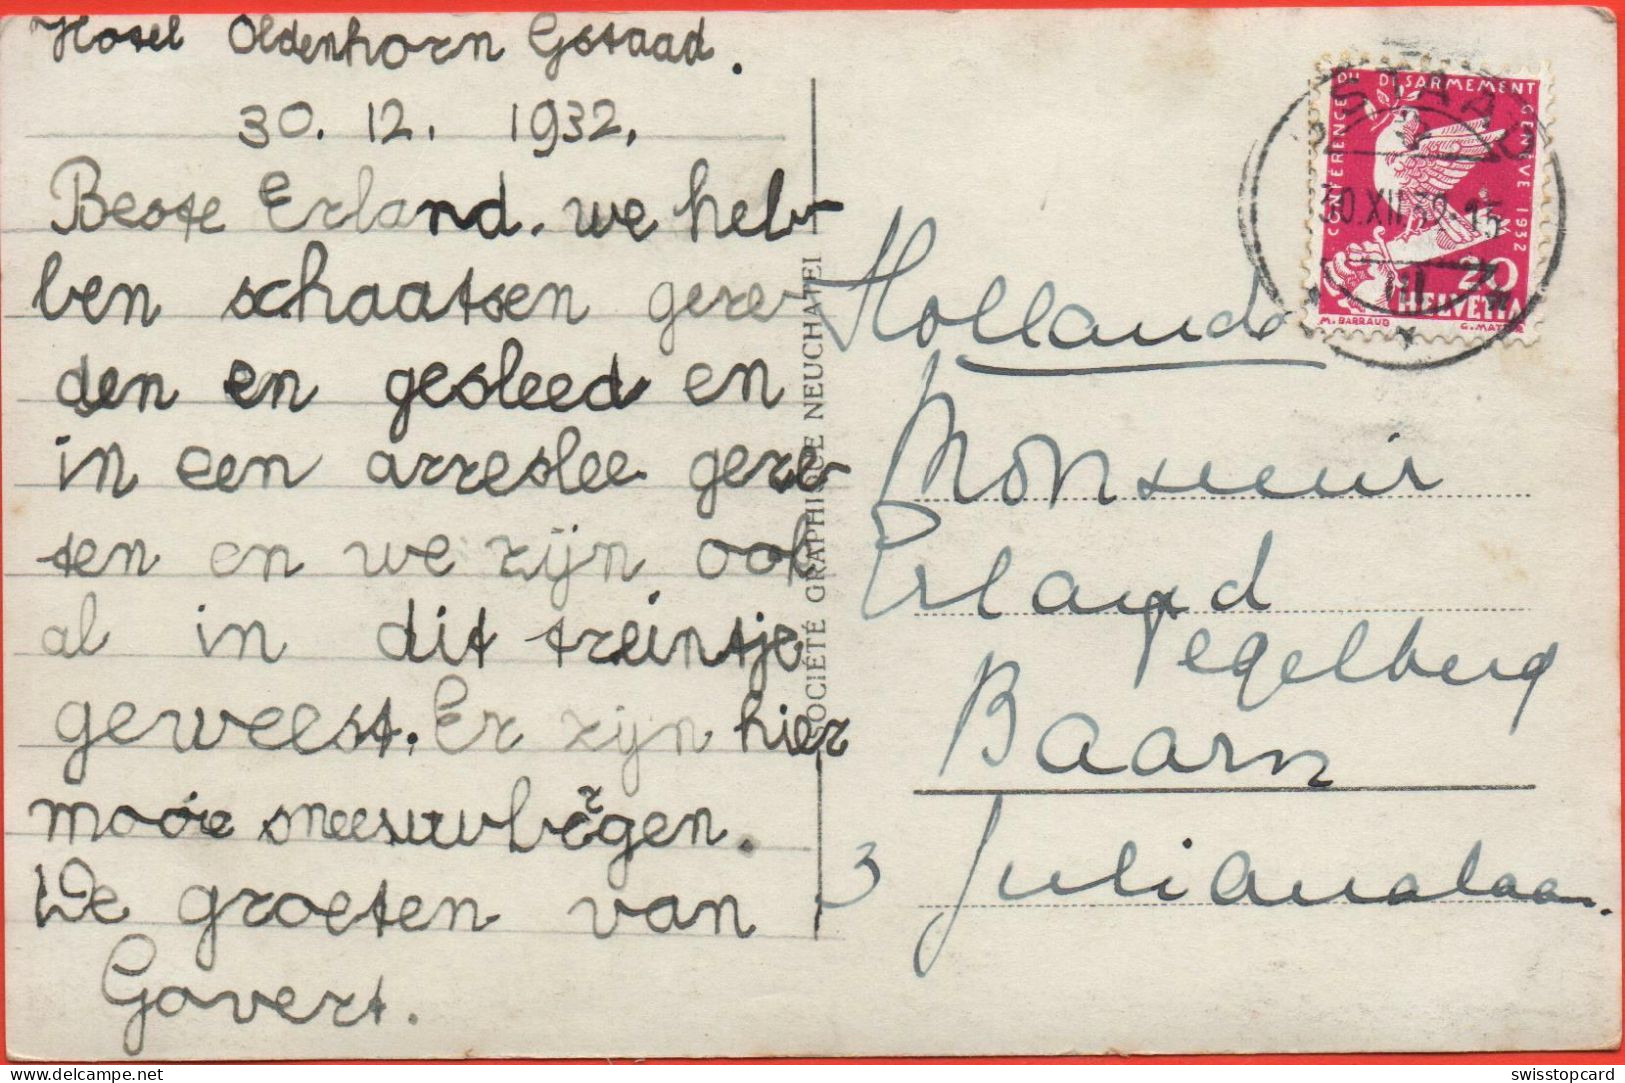 Hotel Oldenhorn Gstaad.
30. 12. 1932.
Beste Erland. we heb-
ben schaatsen gere-
den en gesleed en
in een arreslee gere-
ten en we zijn ook
al in dit treintje
geweest. Er zijn hier
mooie sneeuwbergen.
De groeten van
Govert.
SOCIÉTÉ GRAPHIQUE NEUCHATEL
CONFERENCE DU DESARMEMENT GENÈVE 1932
20
HELVETIA
M. BARRAUD
GSTAAD
30.XII.32-15
Holland
Monsieur
Erland
Pegelberg
Baarn
3 Julianalaan.
delcampe.net
swisstopcard